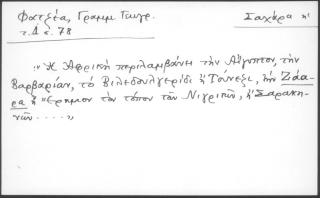 Φατζέα, Γραμμ. Γεωγρ. Σαχάρα ἡ
τ. Δ σ. 78
"Ἡ Ἀφρικὴ περιλαμβάνει τὴν Αἴγυπτον, τὴν
Βαρβαρίαν, τὸ Βιλεδουλγερίδ ἢ Γόνεζι, τὴν Ζάα-
ρα ἢ Ἔρημον τὸν τόπον τῶν Νιγριτῶν, ἢ Σαρακη-
νῶν ....."